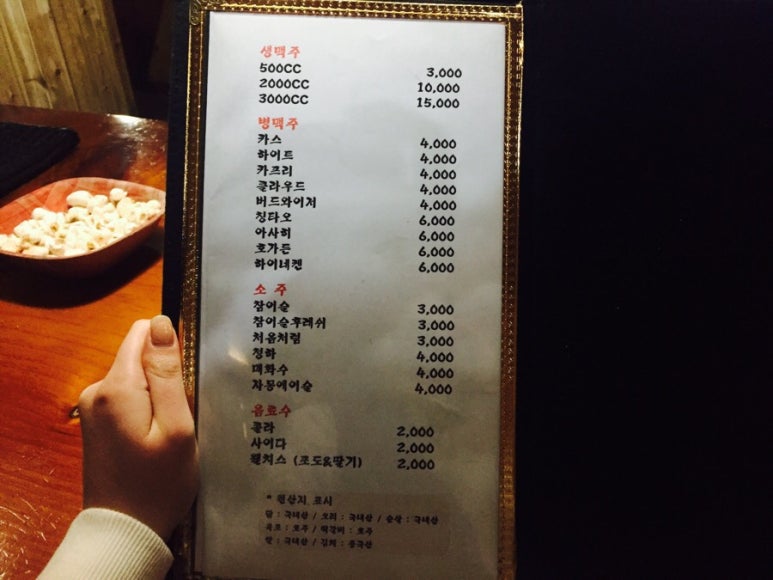 생맥주
500CC 3,000
2000CC 10,000
3000CC 15,000
병맥주
카스 4,000
하이트 4,000
카프리 4,000
클라우드 4,000
버드와이저 4,000
칭타오 6,000
아사히 6,000
호가든 6,000
하이네켄 6,000
소 주
참이슬 3,000
참이슬후레쉬 3,000
처음처럼 3,000
청하 4,000
매화수 4,000
자몽에이슬 4,000
음료수
콜라 2,000
사이다 2,000
웰치스 (포도&딸기) 2,000
* 원산지 표시
닭 : 국내산 / 오리 : 국내산 / 순살 : 국내산
육포 : 호주 / 떡갈비 : 호주
쌀 : 국내산 / 김치 : 중국산